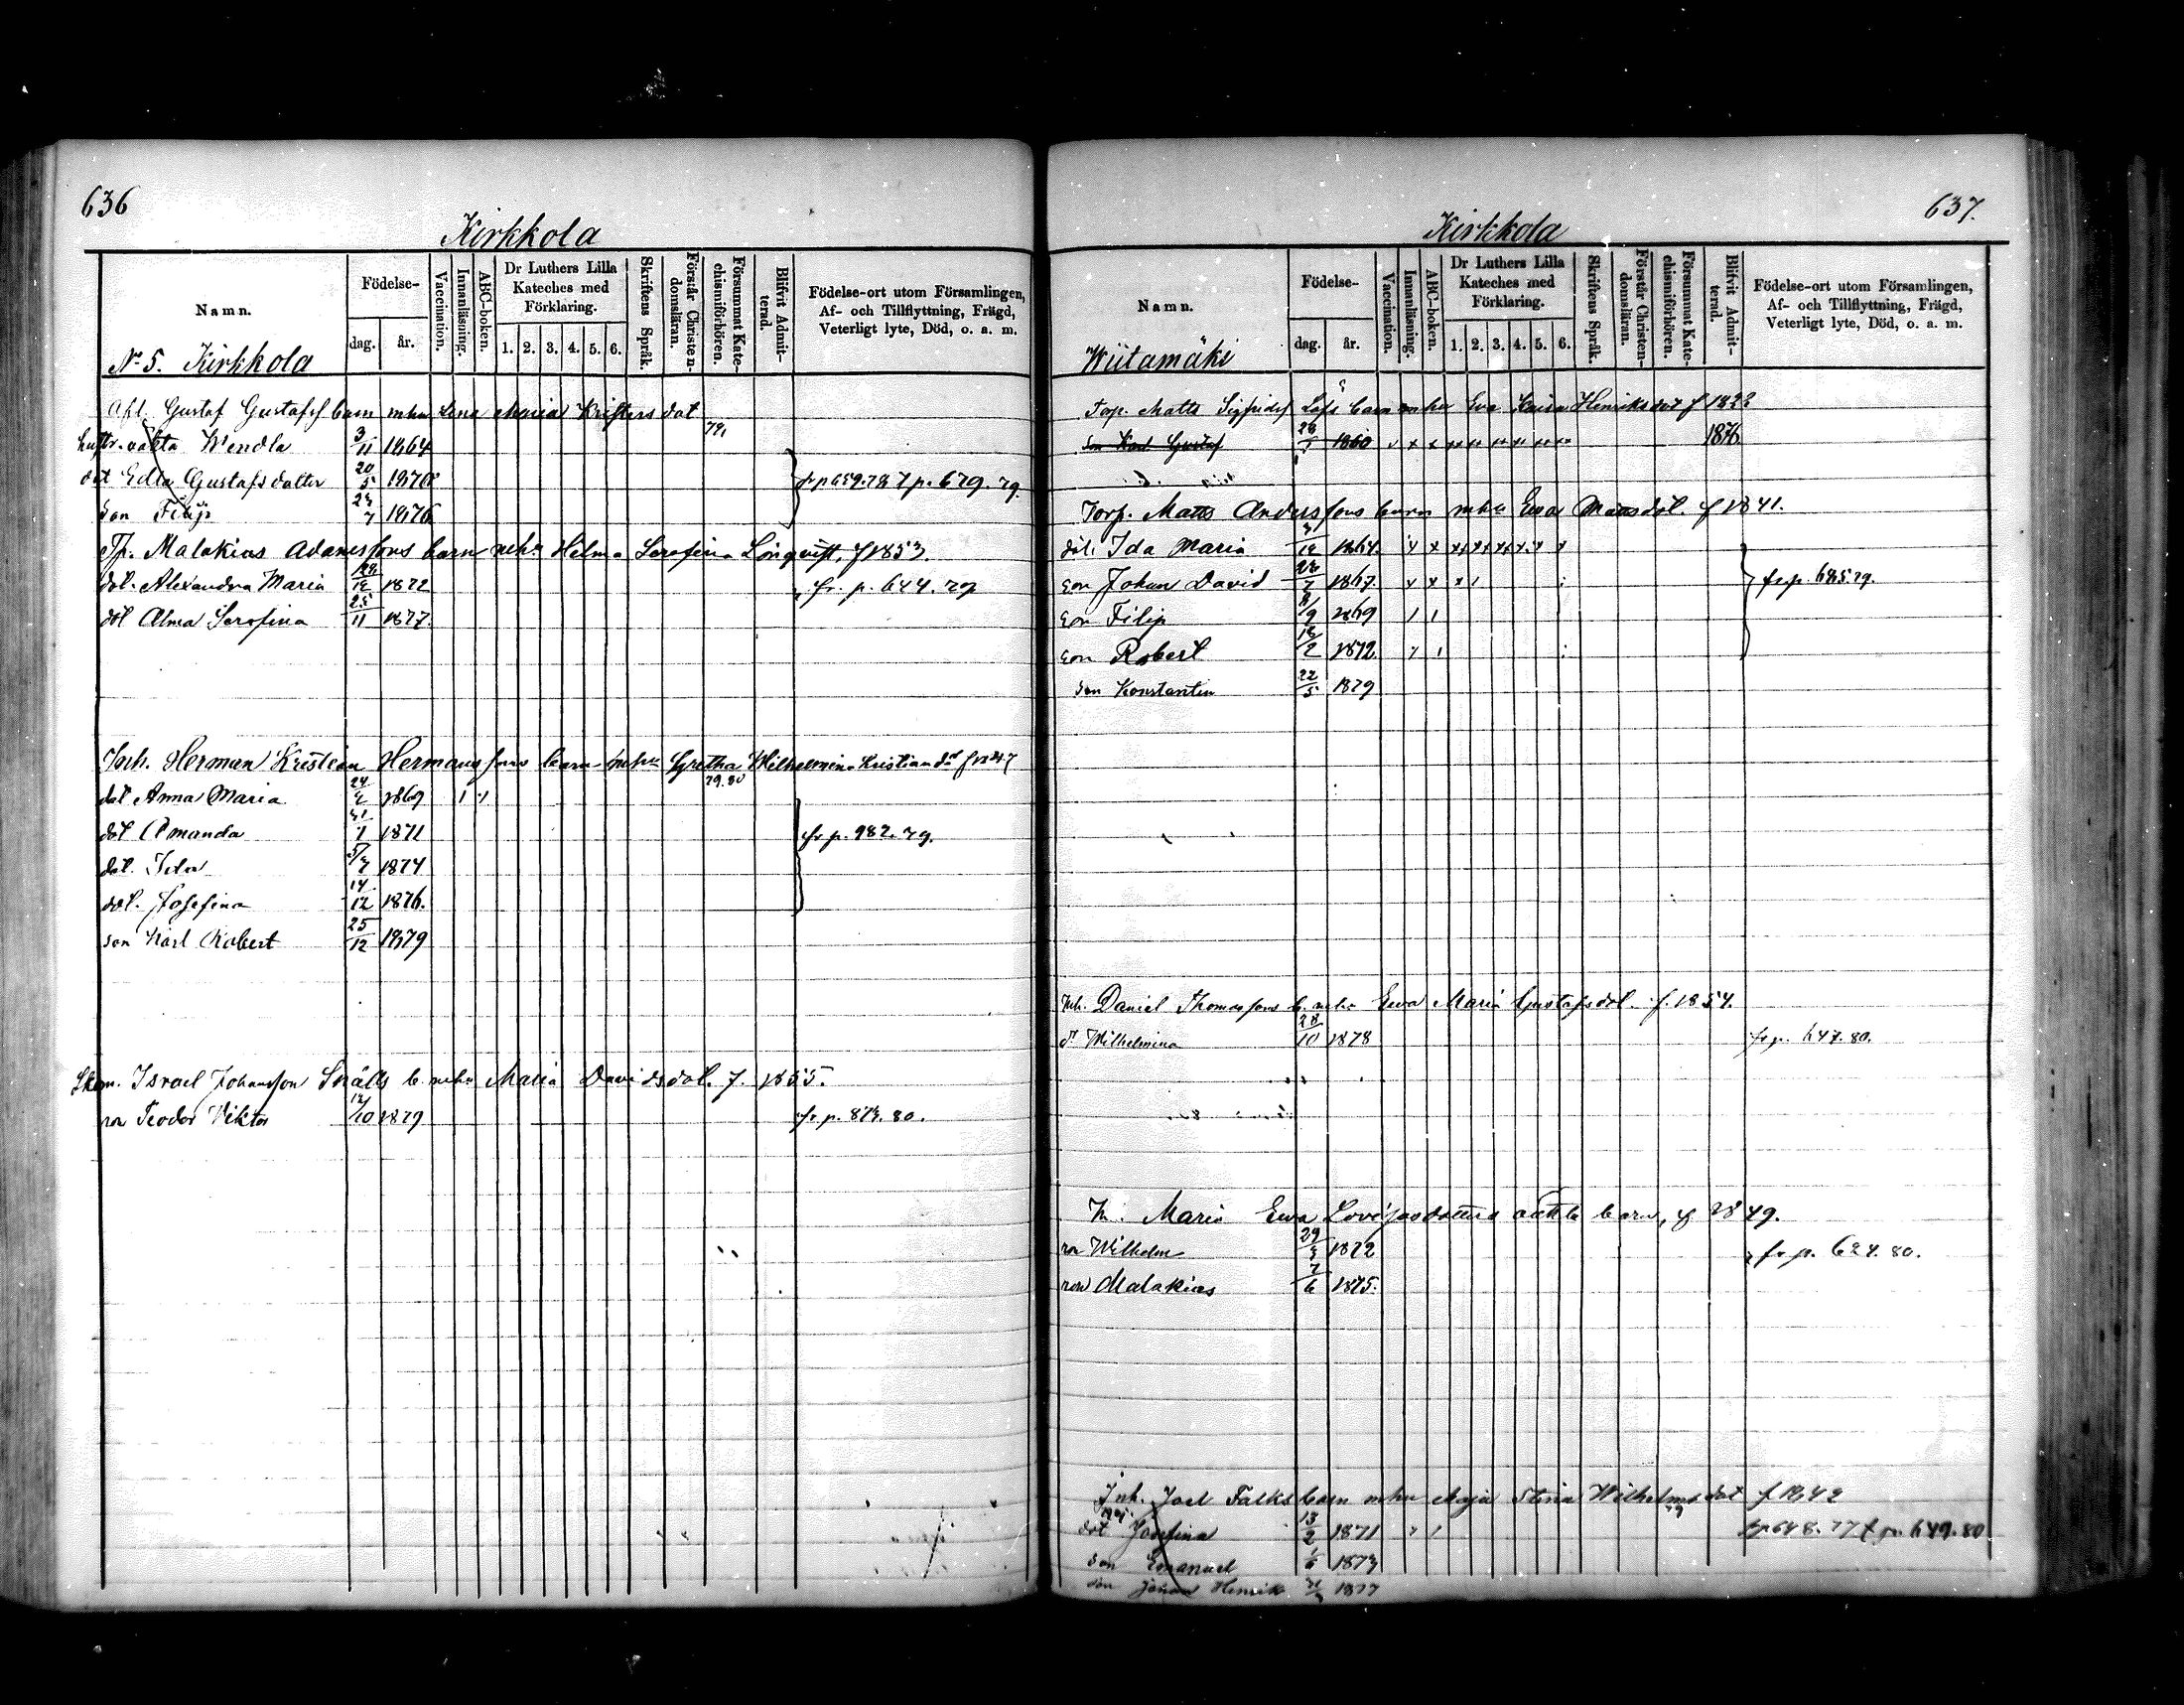 636
Kirkkola
Namn.
Födelse-
dag.
år.
Vaccination.
Innanläsning.
ABC-boken.
Dr Luthers Lilla
Kateches med
Förklaring.
1. 2. 3. 4. 5. 6.
Skriftens Språk.
Förstår Christen-
domsläran.
Försummat Kate-
chismiförhören.
Blifvit Admit-
terad.
Födelse-ort utom Församlingen,
Af- och Tillflyttning, Frägd,
Veterligt lyte, Död, o. a. m.
No 5. Kirkkola
Gustaf barn mhu Lena Maria Kristersdot
79,
äkta Wendla 3/11 1864
dot Edla Gustafsdotter 20/5 1870 fr p 659.78 p. 679. 79.
son Filip 1876
Malakias Adamssons barn mhu Helma Serafina Lönqvist, f 1853.
dot. Alexandra Maria 28/12 1872 fr. p. 644. 79
dot Alma Serafina 25/11 1877.
Inh. Herman Kristian Hermanssons barn mhu Gretha Wilhelmina Kristiansdot
79.80
dot Anna Maria 1869
dot Amanda 1871 fr p. 982. 79.
dot. Ida 1874
dot. Josefina 14/12 1876.
son Karl Robert 25/12 1879
Israel Johansson Snälls b. mhu Maria Davidsdot. f. 1855.
son Teodor Viktor 1879 fr. p. 873. 80.
637.
Kirkkola
Namn.
Födelse-
dag.
år.
Vaccination.
Innanläsning.
ABC-boken.
Dr Luthers Lilla
Kateches med
Förklaring.
1. 2. 3. 4. 5. 6.
Skriftens Språk.
Förstår Christen-
domsläran.
Försummat Kate-
chismiförhören.
Blifvit Admit-
terad.
Födelse-ort utom Församlingen,
Af- och Tillflyttning, Frägd,
Veterligt lyte, Död, o. a. m.
Wiitamäki
Torp. Matts barn mhu Eva Kaisa Henriksdot f
son Karl Gustaf 1860 1876
Torp. Matts Anderssons barn mhu Ewa f 1841.
dot. Ida Maria 1864.
son Johan David 1867. fr p. 685 79.
son Filip 1869
son Robert 1872.
son Konstantin 22/5 1879
Inh. Daniel Thomassons b. mhu Ewa Maria Gustafsdot. f. 1854.
d. Wilhelmina 28/10 1878 fr p. 647. 80.
Maria Ewa oäkta barn, f 1849.
son Wilhelm 1872 fr p. 624. 80.
son Malakias 7/6 1875.
Inh. Joel Falks barn mhu Maja Stina Wilhelmsdot f 1842
dot Josefina 13/2 1871 fr p 648. 77 f p. 649. 80
son Emanuel 1/6 1873
son Johan Henrik 1877